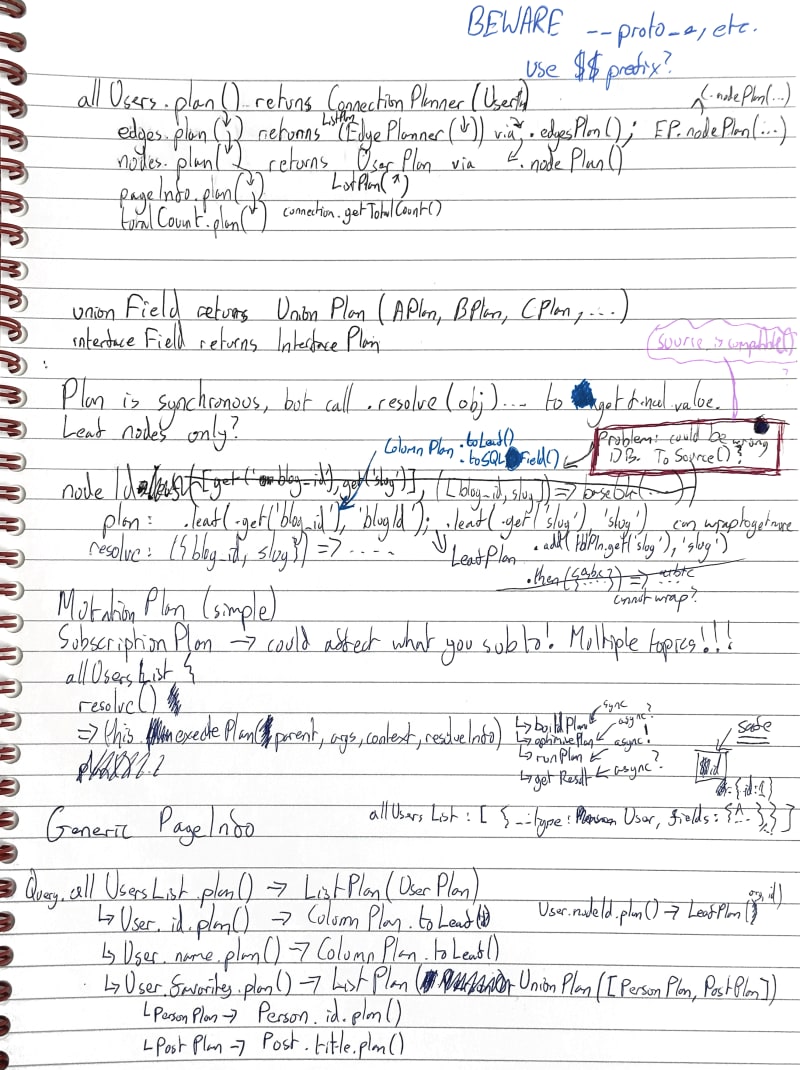 BEWARE --proto--, etc.
use $$ prefix?
allUsers.plan() returns ConnectionPlanner(User)
(.nodePlan(...)
edges.plan(↓) returns ListPlan(EdgePlanner(↓)) via .edgesPlan(); EP.nodePlan(...)
nodes.plan(↓) returns UserPlan via .nodePlan()
pageInfo.plan(↓) ListPlan(↗)
totalCount.plan(↓) connection.getTotalCount()
union Field returns Union Plan (APlan, BPlan, CPlan, ...)
interface Field returns Interface Plan
source is compatible()
?
Plan is synchronous, but call .resolve(obj)... to get final value.
Leaf nodes only?
Column Plan .toLeaf()
.toSQL Field()
Problem: could be wrong
DB. ToSource()?
node Id [get('blog_id'), get('slug')], ([blog_id, slug]) => base64(...)
plan: .leaf(.get('blog_id'), 'blogId'); .leaf(.get('slug') 'slug') can wrap to get more
resolve: ({blog_id, slug}) => ..... LeafPlan .add(tblPln.get('slug'), 'slug')
.then({abc?}) =>
cannot wrap?
Mutation Plan (simple)
Subscription Plan → could affect what you sub to! Multiple topics!!!
allUsersList {
resolve()
=> this. executePlan(parent, args, context, resolveInfo)
↳ buildPlan ← sync
↳ optimisePlan ← async?
↳ runPlan ← async!
↳ get Result ← async?
safe
id
{id:1}
Generic PageInfo
allUsersList: [ {__type: User, fields: {^...}} ]
Query.allUsersList.plan() → ListPlan(UserPlan)
↳ User.id.plan() → Column Plan.toLeaf()
User.nodeId.plan() → LeafPlan(
↳ User.name.plan() → Column Plan.toLeaf()
↳ User.favorites.plan() → List Plan( UnionPlan([PersonPlan, PostPlan])
↳ PersonPlan → Person.id.plan()
↳ Post Plan → Post.title.plan()